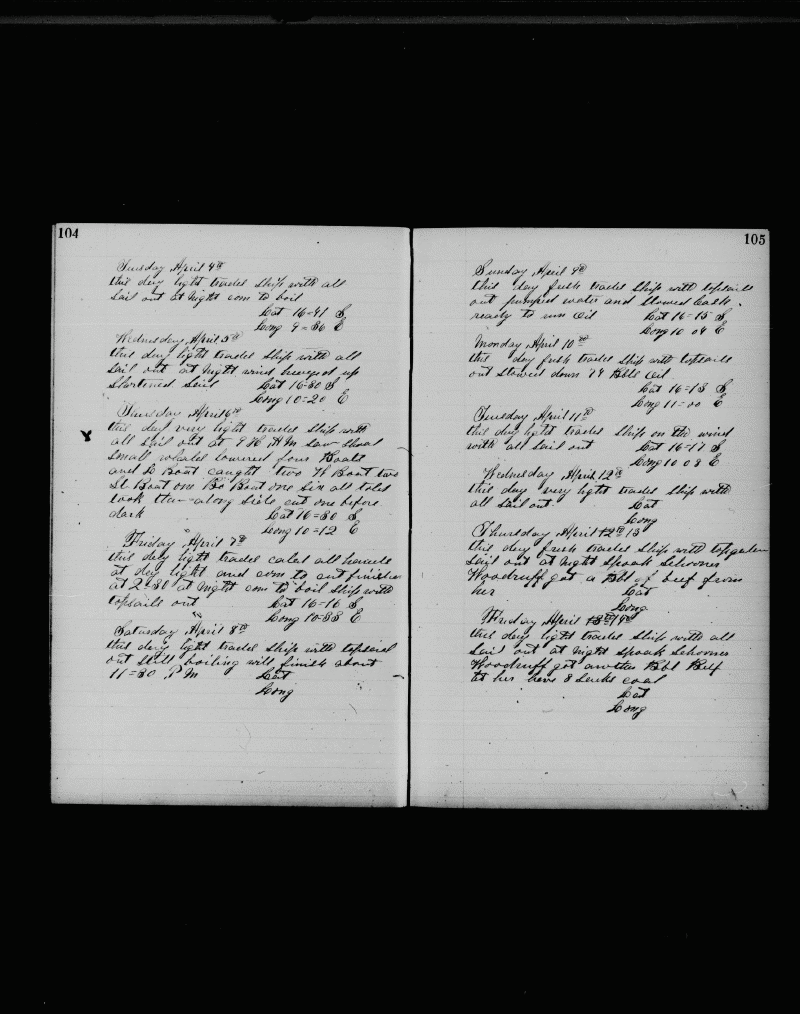 104
Tuesday April 4th
this day light trades Ship with all
sail out at night com to boil
Lat 16=41 S
Long 9=36 E
Wednesday April 5th
this day light trades Ship with all
sail out at night wind hauled up
Shortened sail Lat 16-30 S
Long 10=20 E
Thursday April 6th
this day very light trades Ship with
all sail out at 9 A M saw Shoal
small whales lowered four Boats
and St Boat caught two W Boat two
St Boat one Bo Boat one six all told
took them along side cut one before
dark Lat 16=30 S
Long 10=12 E
Friday April 7th
this day light trades called all hands
at day light and com to cut finished
at 2=30 at night com to boil Ship with
topsails out Lat 16-16 S
Long 10-33 E
Saturday April 8th
this day light trades Ship with topsail
out still boiling will finish about
11=30 P M Lat
Long
105
Sunday April 9
this day fresh trades Ship with topsails
out pumped water and stowed cask
ready to run oil Lat 16-15 S
Long 10 04 E
Monday April 10
this day fresh trades Ship with topsails
out stowed down Bbls oil
Lat 16=13 S
Long 11=00 E
Tuesday April 11th
this day light trades Ship on the wind
with all sail out Lat 16=17 S
Long 10 08 E
Wednesday April 12th
this day very light trades Ship with
all sail out Lat
Long
Thursday April 12th 13
this day fresh trades Ship with topgallan
sail out at night Spoak Schooner
Woodruff got a Bbl of beef from
her Lat
Long
April 13th
this day light trades Ship with all
sail out at night Spoak Schooner
Woodruff got another Bbl Beef
let her have 8 sacks coal
Lat
Long